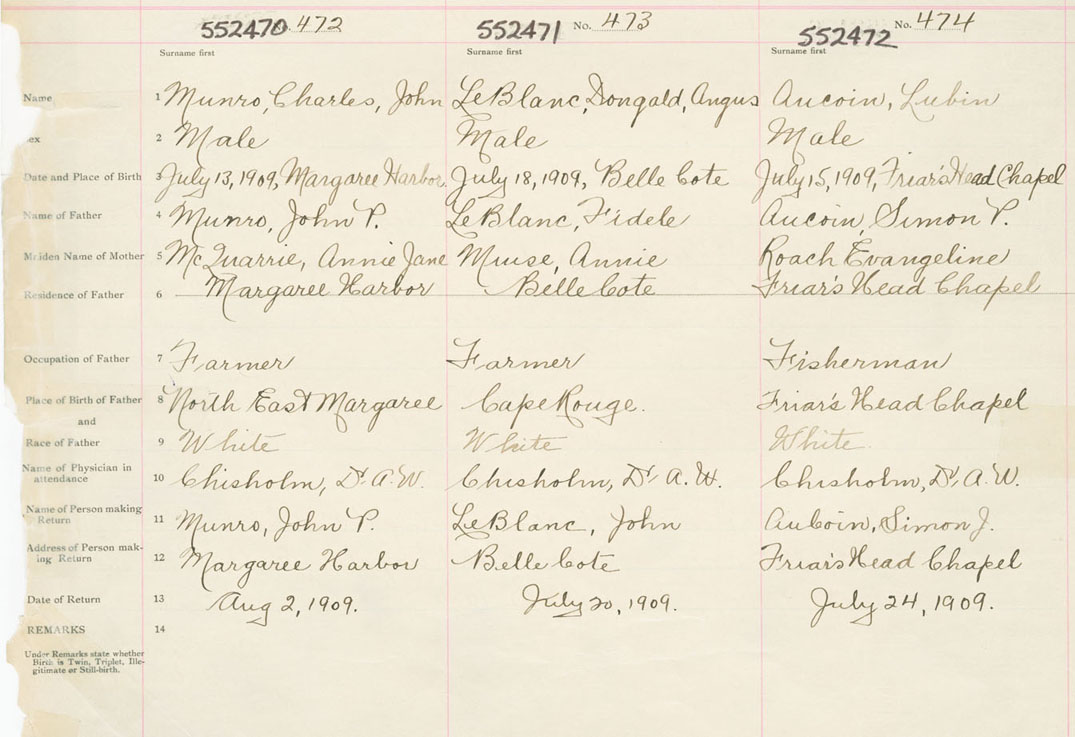 552470 No. 472 552471 No. 473 552472 No. 474
Surname first Surname first Surname first
Name 1 Munro, Charles, John LeBlanc, Dongald, Angus Aucoin, Lubin
ex 2 Male Male Male
Date and Place of Birth 3 July 13, 1909, Margaree Harbor July 18, 1909, Belle Cote July 15, 1909, Friar's Head Chapel
Name of Father 4 Munro, John P. LeBlanc, Fidele Aucoin, Simon P.
Maiden Name of Mother 5 McQuarrie, Annie Jane Muise, Annie Roach Evangeline
Residence of Father 6 Margaree Harbor Belle Cote Friar's Head Chapel
Occupation of Father 7 Farmer Farmer Fisherman
Place of Birth of Father 8 North East Margaree Cape Rouge. Friar's Head Chapel
and
Race of Father 9 White White White
Name of Physician in
attendance 10 Chisholm, Dr A. W. Chisholm, Dr, A. W. Chisholm, Dr, A. W.
Name of Person making
Return 11 Munro, John P. LeBlanc, John Aucoin, Simon J.
Address of Person mak-
ing Return 12 Margaree Harbor Belle Cote Friar's Head Chapel
Date of Return 13 Aug 2, 1909. July 20, 1909. July 24, 1909.
REMARKS 14
Under Remarks state whether
Birth is Twin, Triplet, Ille-
gitimate or Still-birth.